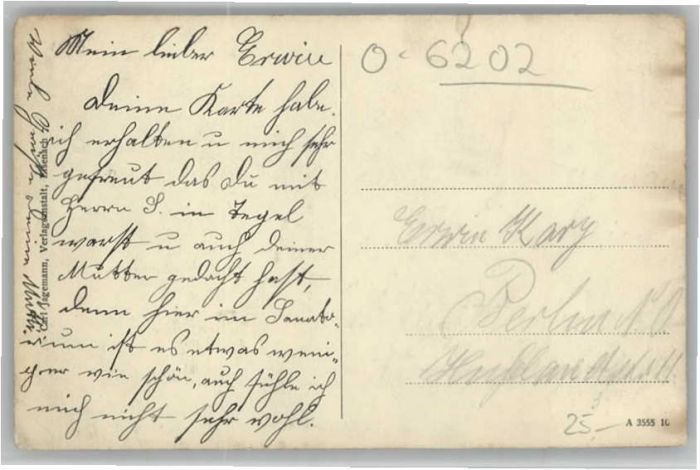 Mein lieber Erwin
Deine Karte habe
ich erhalten u mich sehr
gefreut das Du mit
Herrn S. in Tegel
warst u auch deiner
Mutter gedacht hast,
denn hier im Sanato-
rium ist es etwas weni-
ger wie schön, auch fühle ich
mich nicht sehr wohl.
deine Mutter
Carl Jagemann, Verlagsanstalt, Eisenach
0-6202
Erwin Karg
Berlin
25.-
A 3555 10